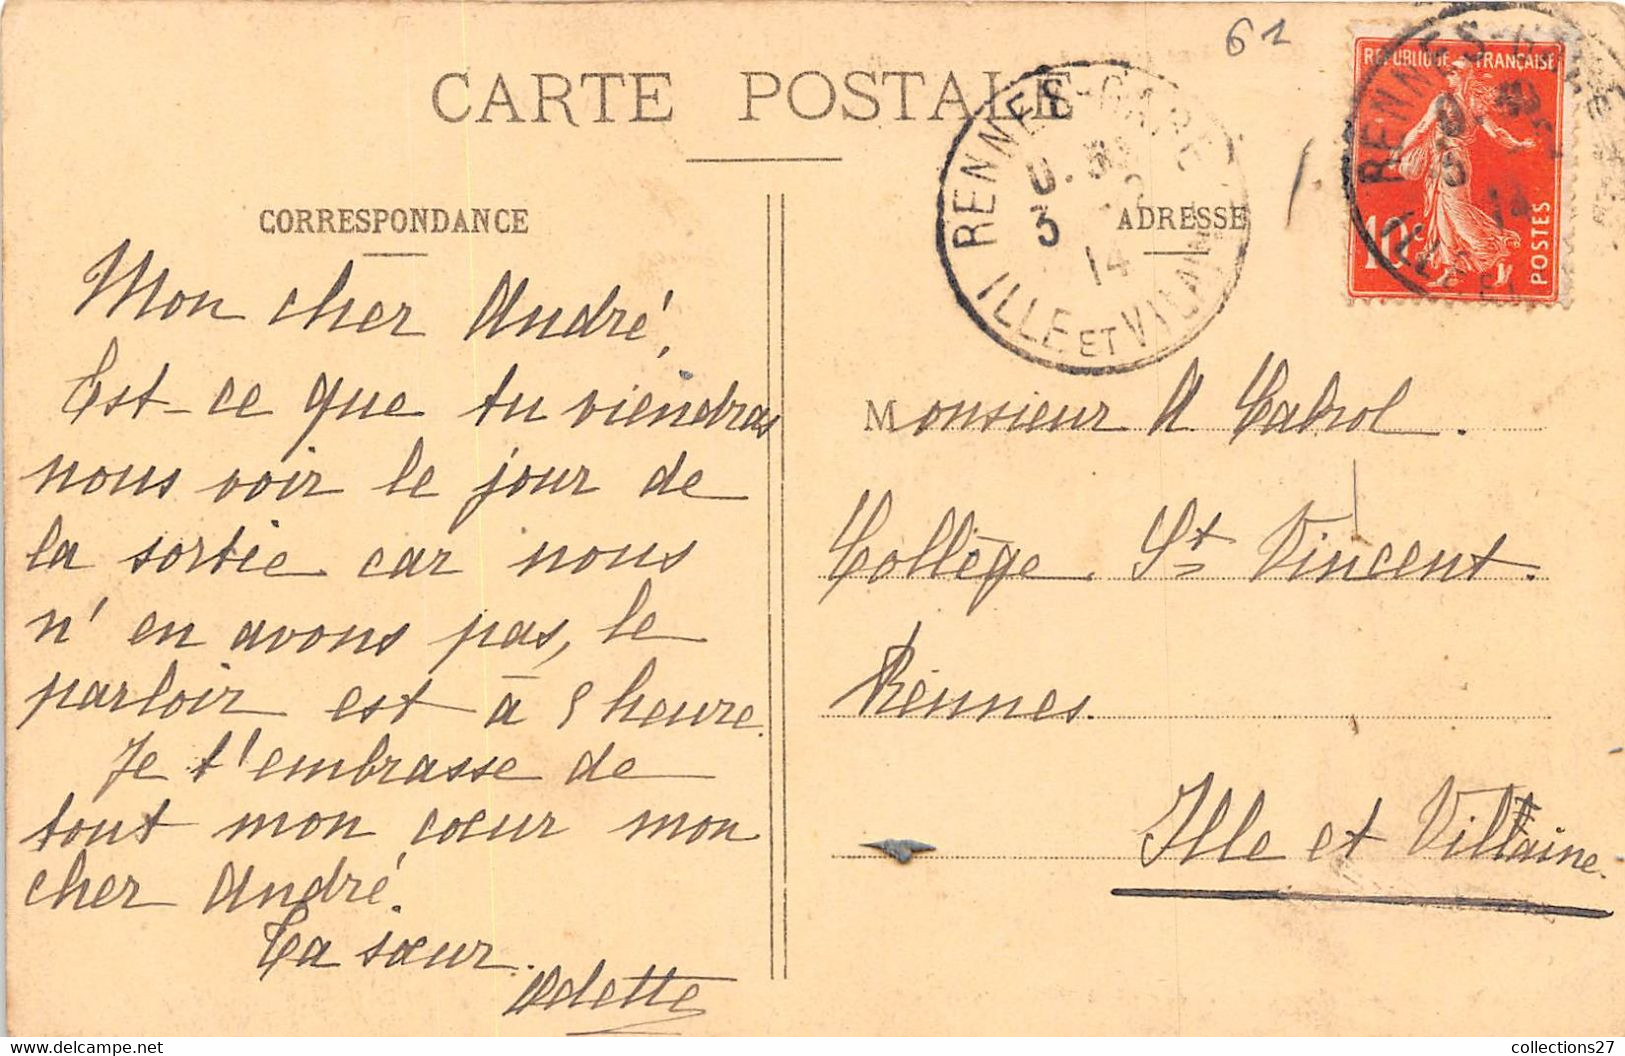 61
CARTE POSTALE
RENNES-GARE
3 14
ILLE ET VILAINE
REPUBLIQUE FRANÇAISE
10c
POSTES
CORRESPONDANCE
Mon cher André,
Est-ce que tu viendras
nous voir le jour de
la sortie car nous
n'en avons pas, le
parloir est à heure.
Je t'embrasse de
tout mon cœur mon
cher André.
Ta sœur.
Odette
ADRESSE
Monsieur A Cabrol.
Collège St Vincent.
Rennes.
Ille et Villaine.
collections27